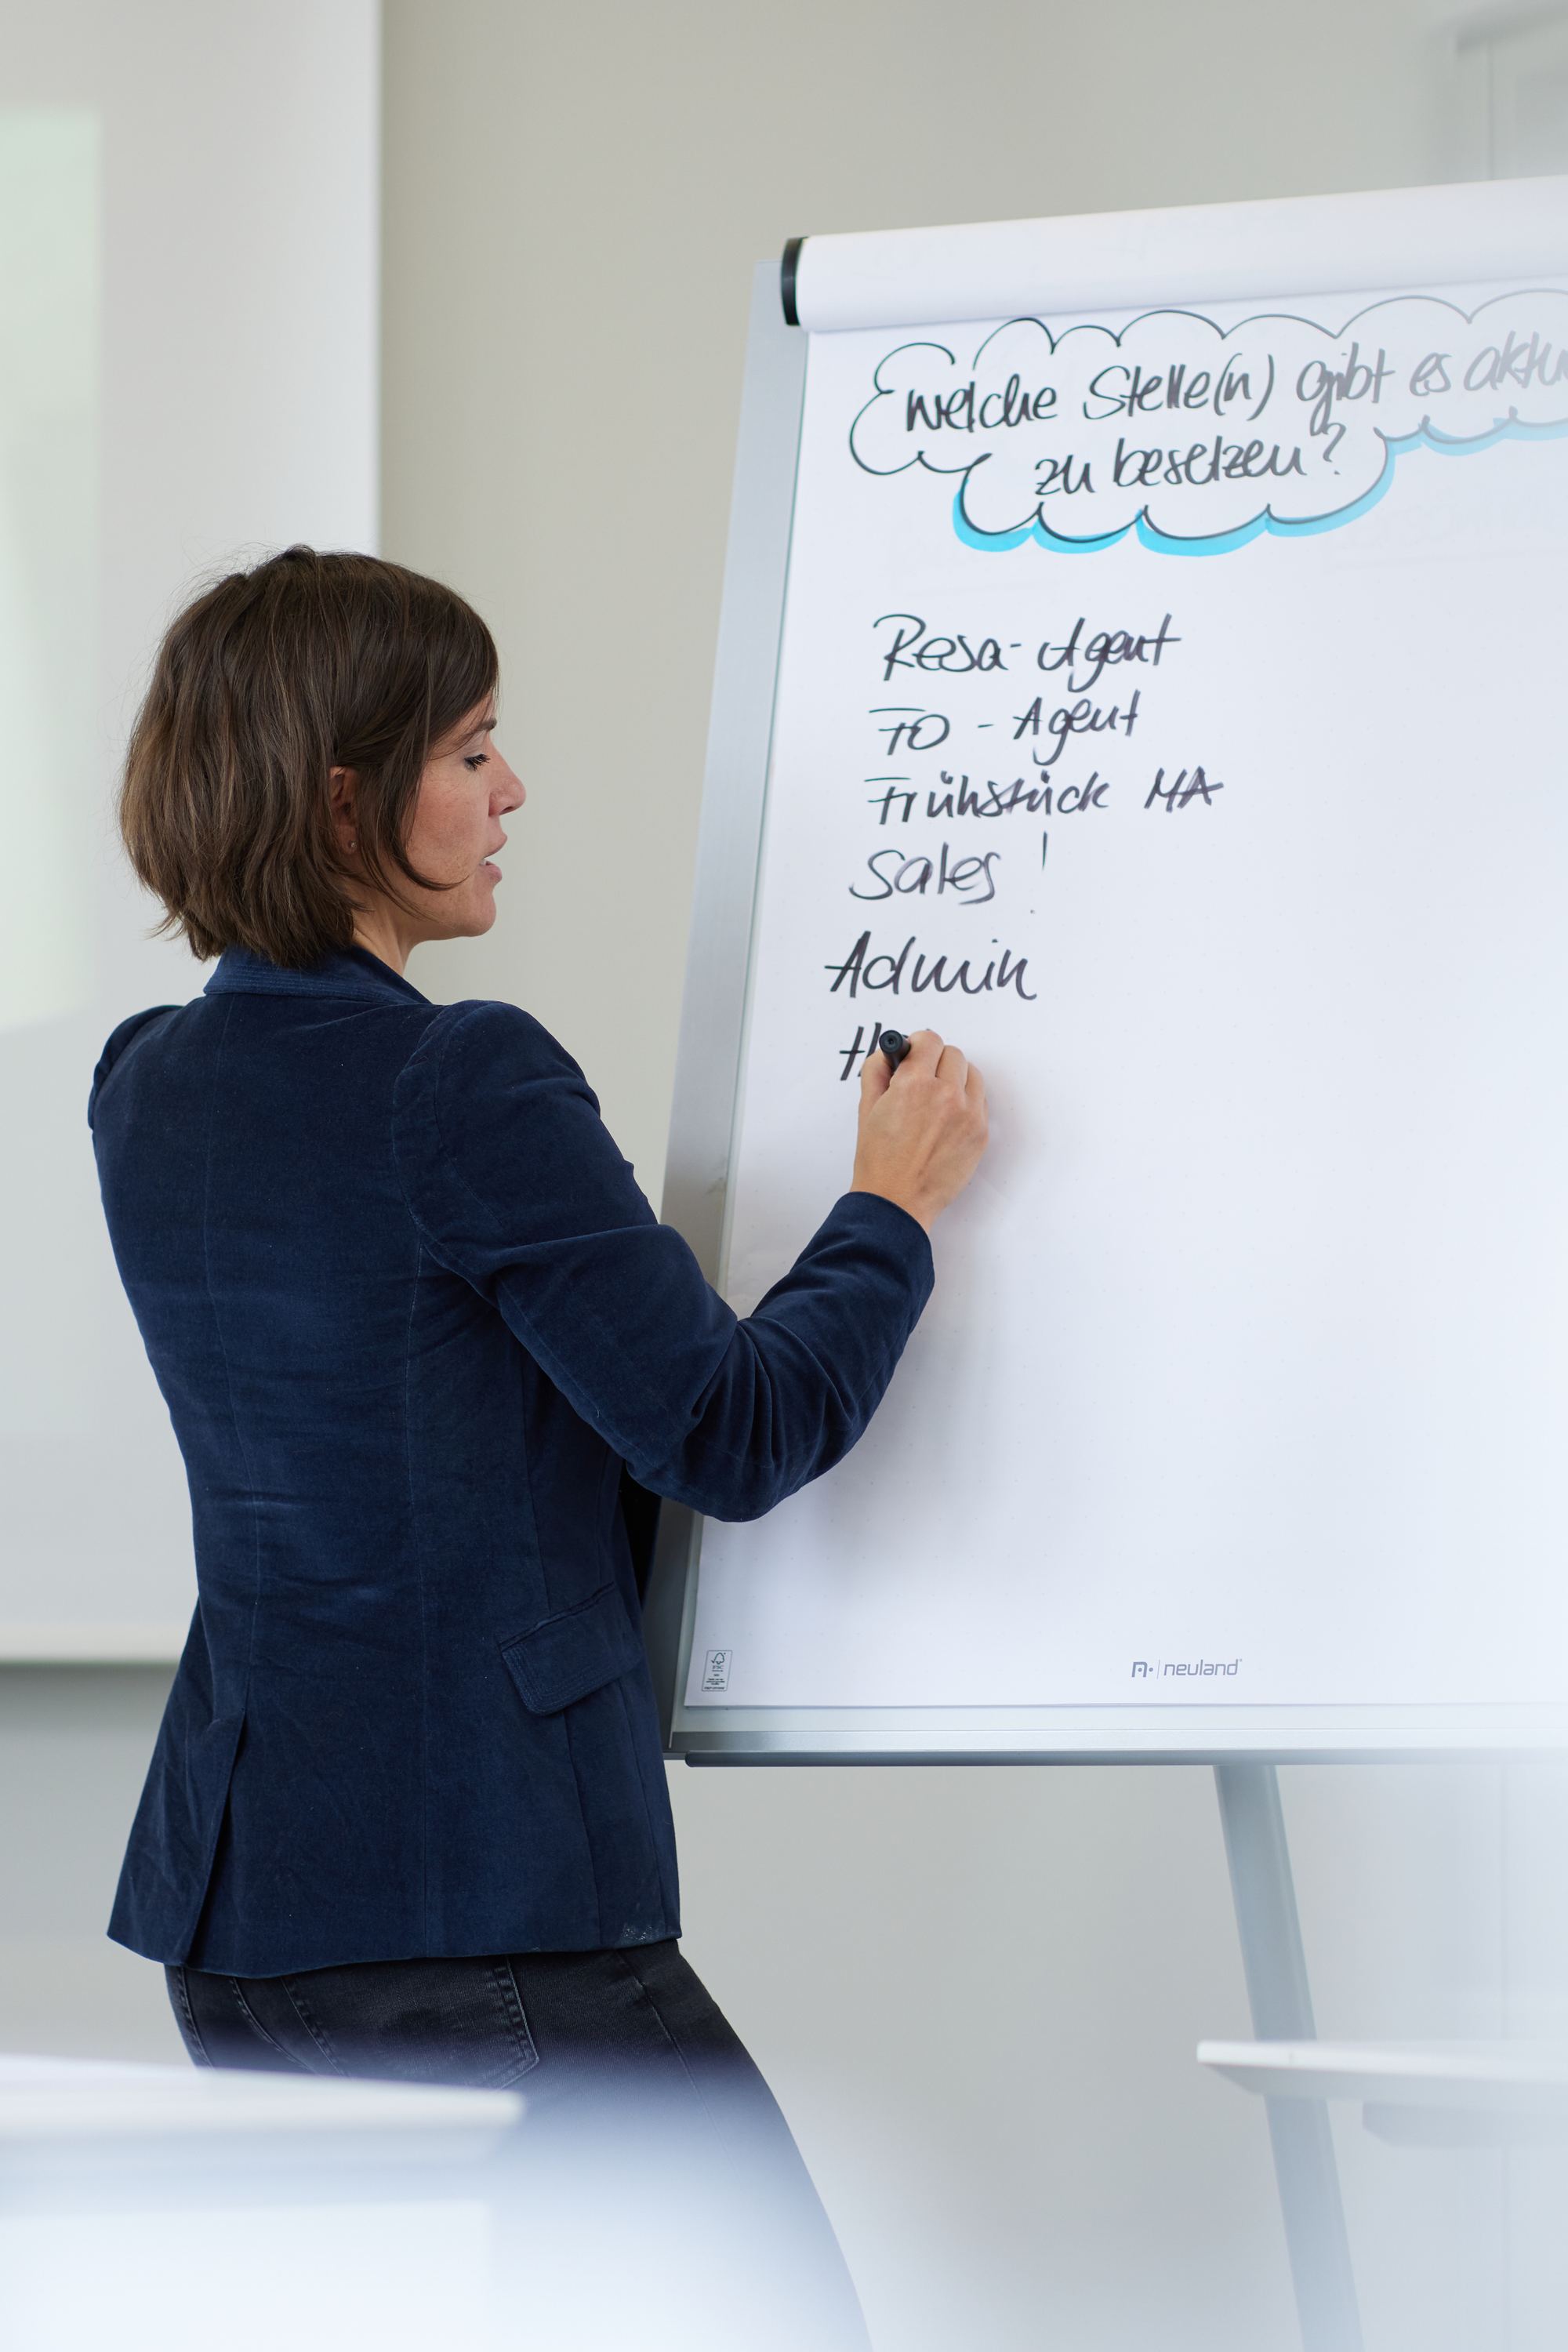 Welche Stelle(n) gibt es aktu
zu besetzen?
Resa-Agent
FO - Agent
Frühstück MA
Sales !
Admin
H
neuland